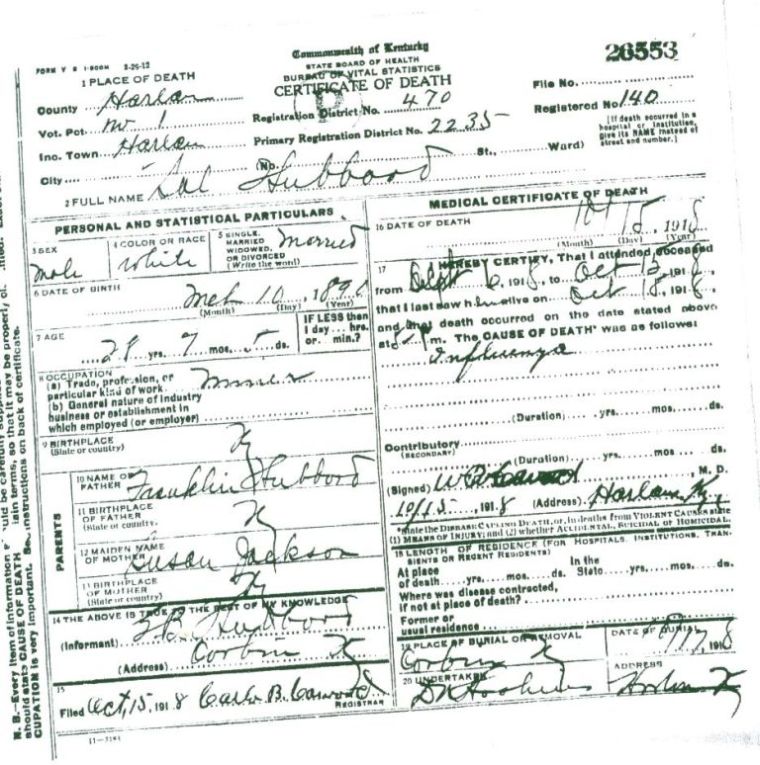 FORM V S 1-500M 3-25-12
Commonwealth of Kentucky
STATE BOARD OF HEALTH
BUREAU OF VITAL STATISTICS
CERTIFICATE OF DEATH
26553
1 PLACE OF DEATH
County Harlan
Vot. Pct. No 1
Inc. Town Harlan
City
Registration District No. 470
Primary Registration District No. 2235
File No.
Registered No 140
[If death occurred in a
hospital or institution,
give its NAME instead of
street and number.]
(No. St., Ward)
2 FULL NAME Sol Hubbard
PERSONAL AND STATISTICAL PARTICULARS
3 SEX
Male
4 COLOR OR RACE
White
5 SINGLE,
MARRIED
WIDOWED,
OR DIVORCED
(Write the word)
Married
6 DATE OF BIRTH
Mch 10, 189
(Month) (Day) (Year)
7 AGE
yrs. 7 mos. 5 ds.
IF LESS then
1 day... hrs.
or min.?
8 OCCUPATION
(a) Trade, profession, or
particular kind of work
(b) General nature of industry
business or establishment in
which employed (or employer)
9 BIRTHPLACE
(State or country)
Ky
PARENTS
10 NAME OF
FATHER
Franklin Hubbard
11 BIRTHPLACE
OF FATHER
(State or country.
Ky
12 MAIDEN NAME
OF MOTHER
Susan Jackson
13 BIRTHPLACE
OF MOTHER
(State or country)
Ky
14 THE ABOVE IS TRUE TO THE BEST OF MY KNOWLEDGE
(Informant) Hubbard
(Address) Corbin Ky
15
Filed Oct, 15, 1918 B. Cawood
REGISTRAR
11-3184
MEDICAL CERTIFICATE OF DEATH
16 DATE OF DEATH
15, 1918
(Month) (Day) (Year)
17 I HEREBY CERTIFY, That I attended deceased
from 6, 1918, to Oct 15, 1918,
that I last saw h alive on Oct 1918,
and that death occurred on the date stated above
at m. The CAUSE OF DEATH* was as follows:
Influenza
(Duration) yrs. mos. ds.
Contributory
(SECONDARY)
(Duration) yrs. mos. ds.
(Signed) Cawood, M. D.
10/15, 1918 (Address) Harlan Ky.
*State the DISEASE CAUSING DEATH, or, in deaths from VIOLENT CAUSES state
(1) MEANS OF INJURY; and (2) whether ACCIDENTAL, SUICIDAL OR HOMICIDAL.
18 LENGTH OF RESIDENCE (FOR HOSPITALS, INSTITUTIONS, TRAN-
SIENTS OR RECENT RESIDENTS)
At place In the
of death yrs. mos. ds. State yrs. mos. ds.
Where was disease contracted,
if not at place of death?
Former or
usual residence
19 PLACE OF BURIAL OR REMOVAL
Corbin Ky
DATE OF BURIAL
1918
20 UNDERTAKER
ADDRESS
Harlan Ky
N. B.—Every item of information
should state CAUSE OF DEATH in plain terms, so that it may be properly
CUPATION is very important. See instructions on back of certificate.